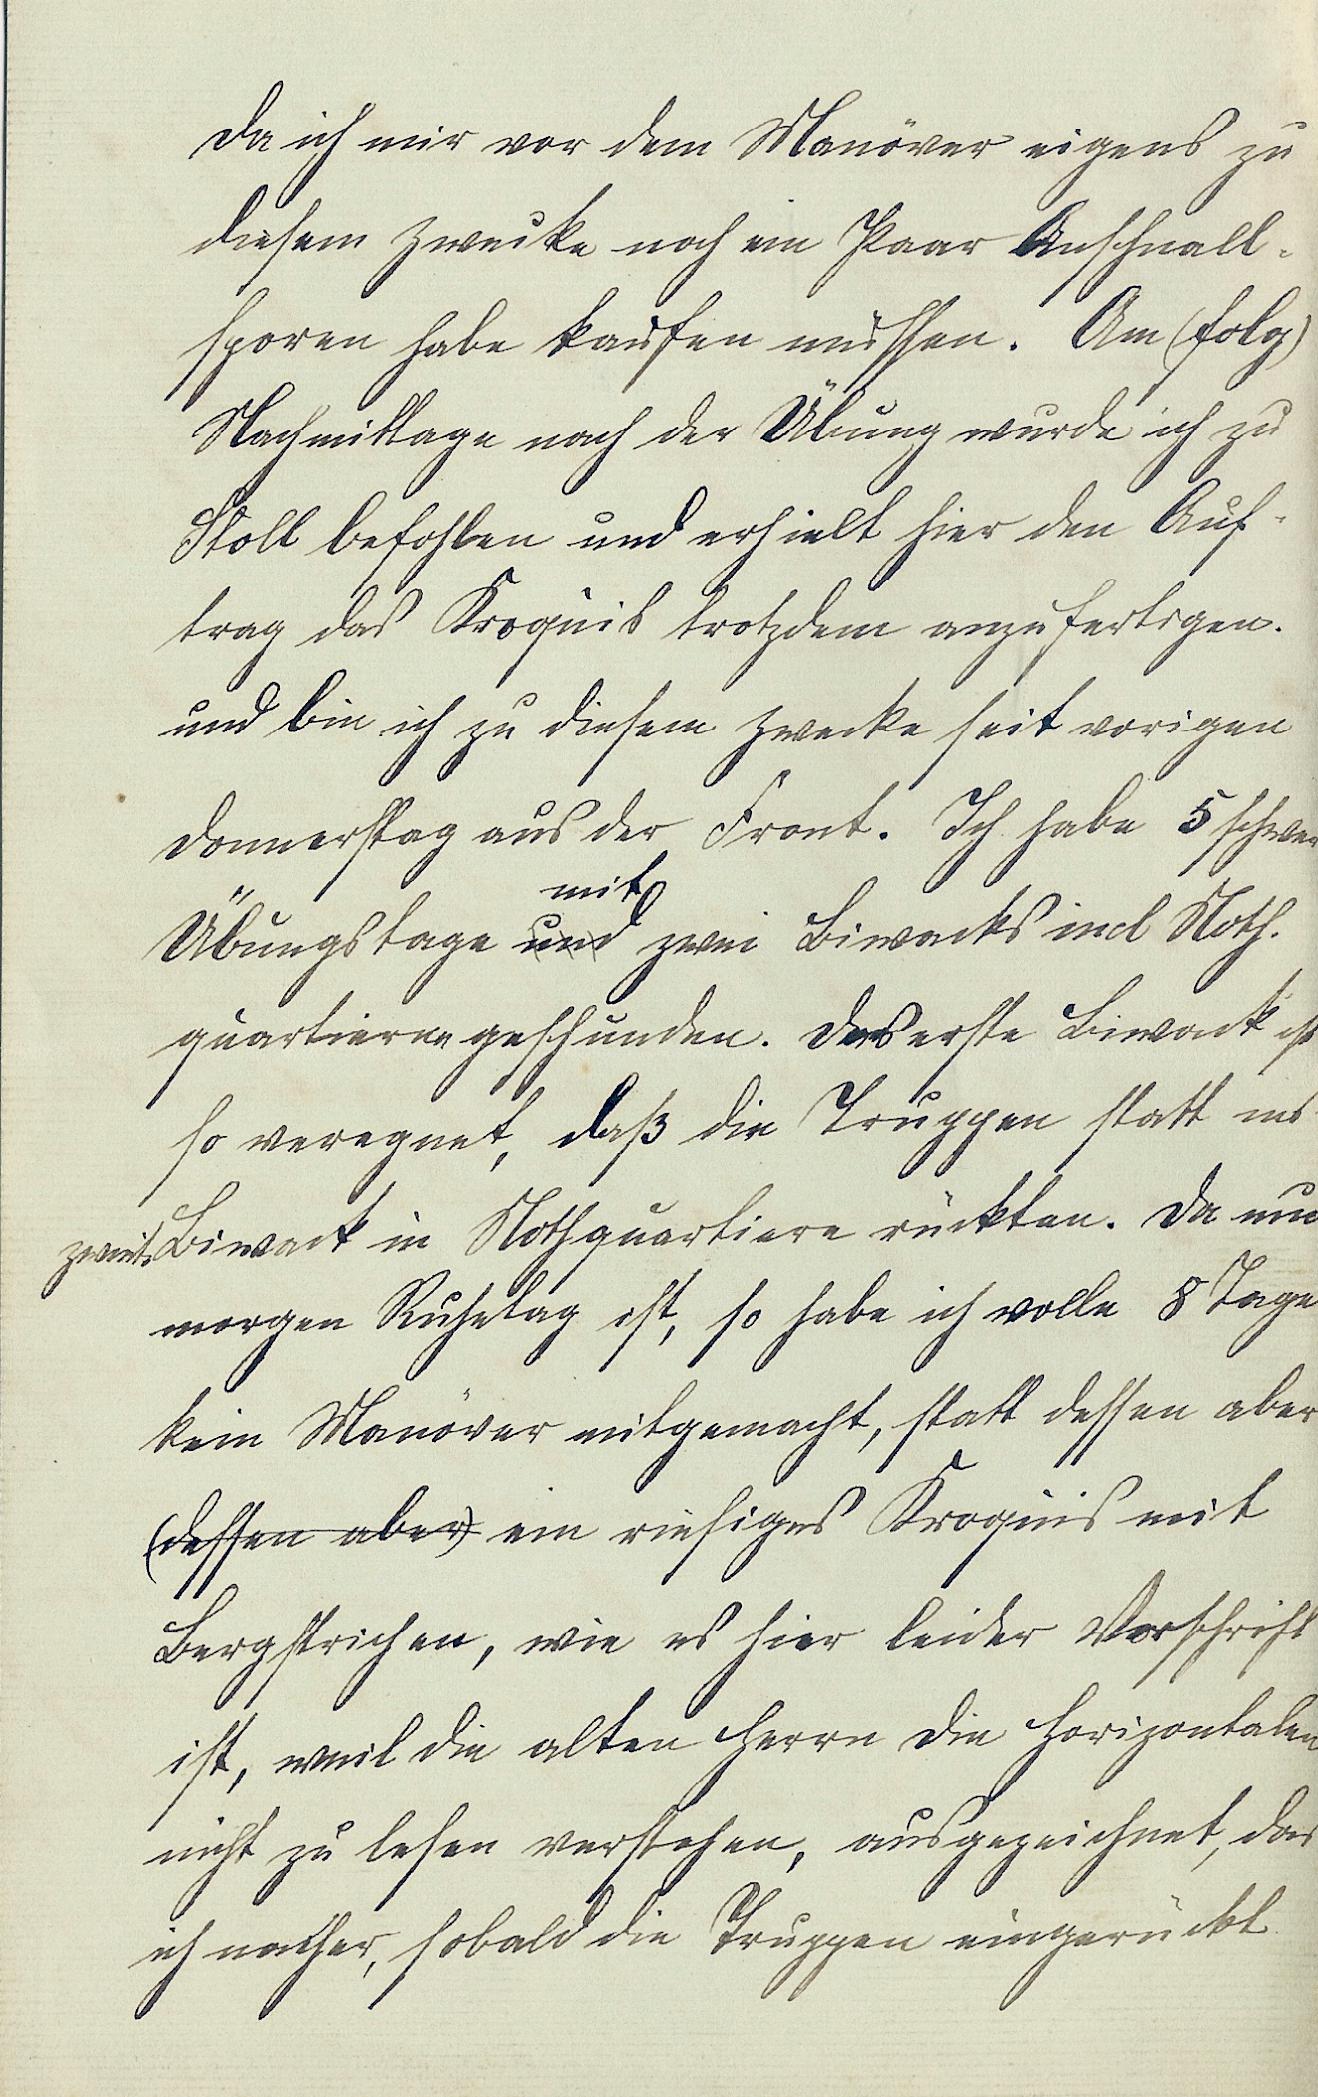 da ich mir vor dem Manöver eigens zu
diesem Zwecke noch ein Paar Anschnall-
sporen habe kaufen müssen. Am (folg)
Nachmittage nach der Übung wurde ich zu
Stoll befohlen und erhielt hier den Auf-
trag das Kroquis trotzdem anzufertigen.
und bin ich zu diesem Zwecke seit vorigen
Donnerstag aus der Front. Ich habe 5 schwere
mit
Übungstage und zwei Biwacks incl Noth-
quartieren geschunden. Das erste Biwack ist
so veregnet, daß die Truppen statt ins
zweite Biwack in Nothquartiere rückten. Da nun
morgen Ruhetag ist, so habe ich volle 8 Tage
kein Manöver mitgemacht, statt dessen aber
(dessen aber) ein riesiges Kroquis mit
Bergstrichen, wie es hier leider Vorschrift
ist, weil die alten Herrn die Horizontalen
nicht zu lesen verstehen, ausgezeichnet, das
ich nacher, sobald die Truppen eingerückt